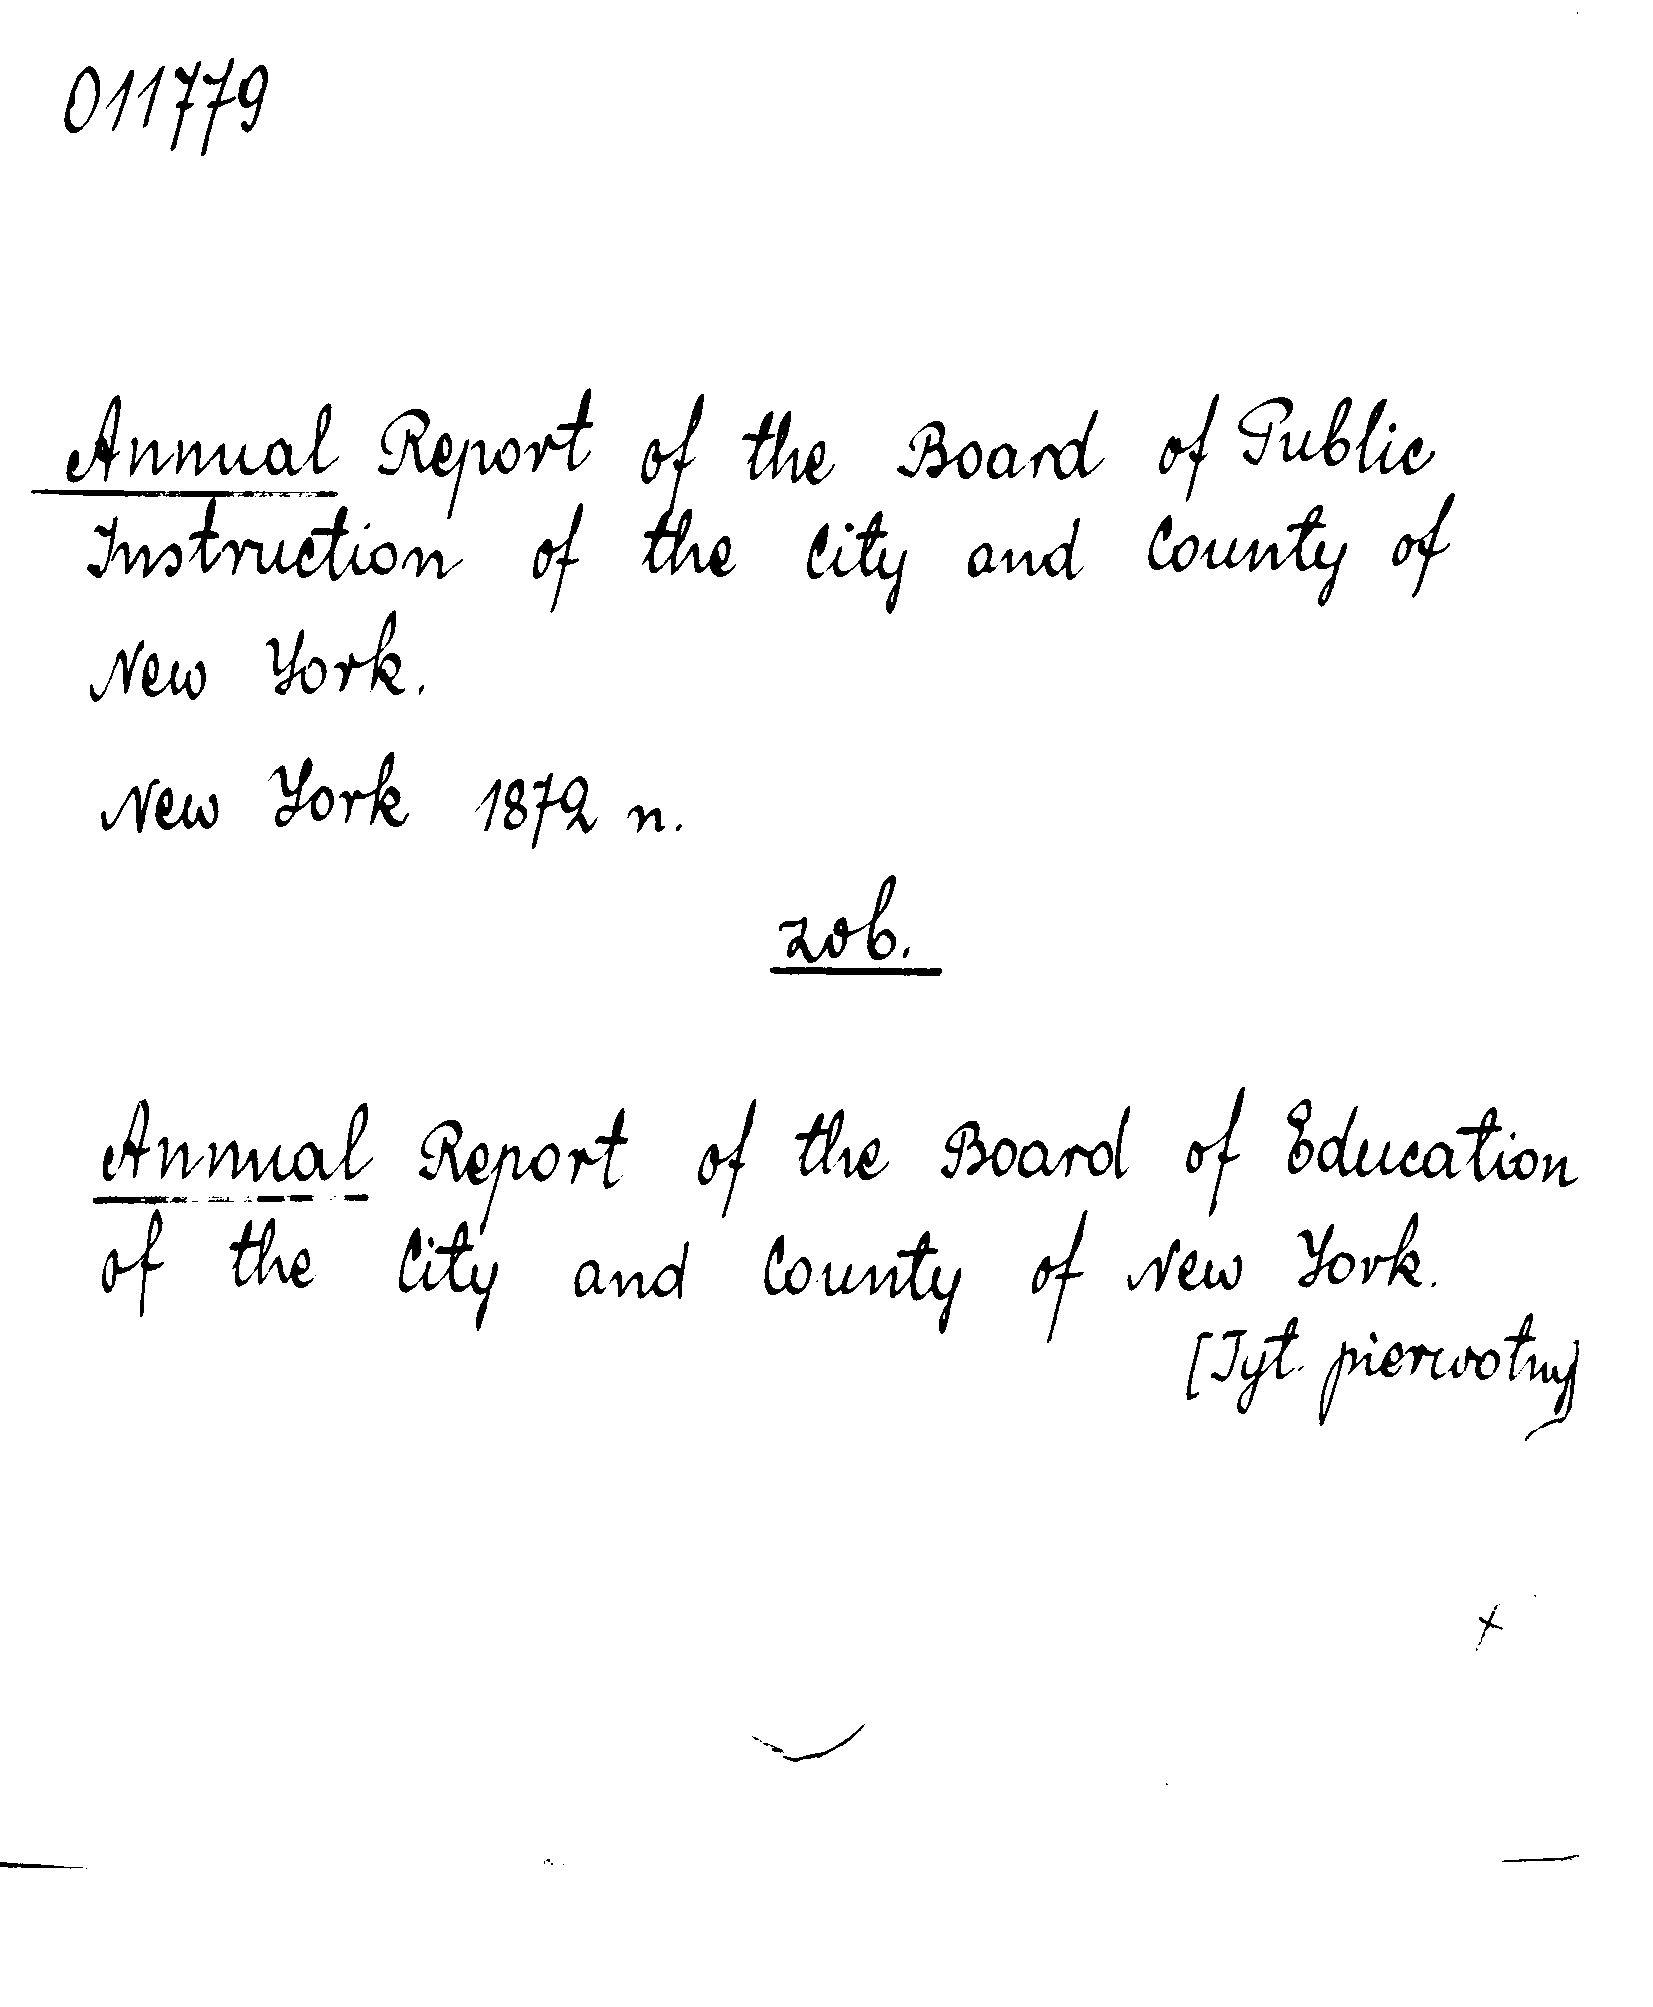 011779
Annual Report of the Board of Public
Instruction of the City and County of
New York.
New York 1872 n.
zob.
Annual Report of the Board of Education
of the City and County of New York.
[Tyt. pierwotny]
x